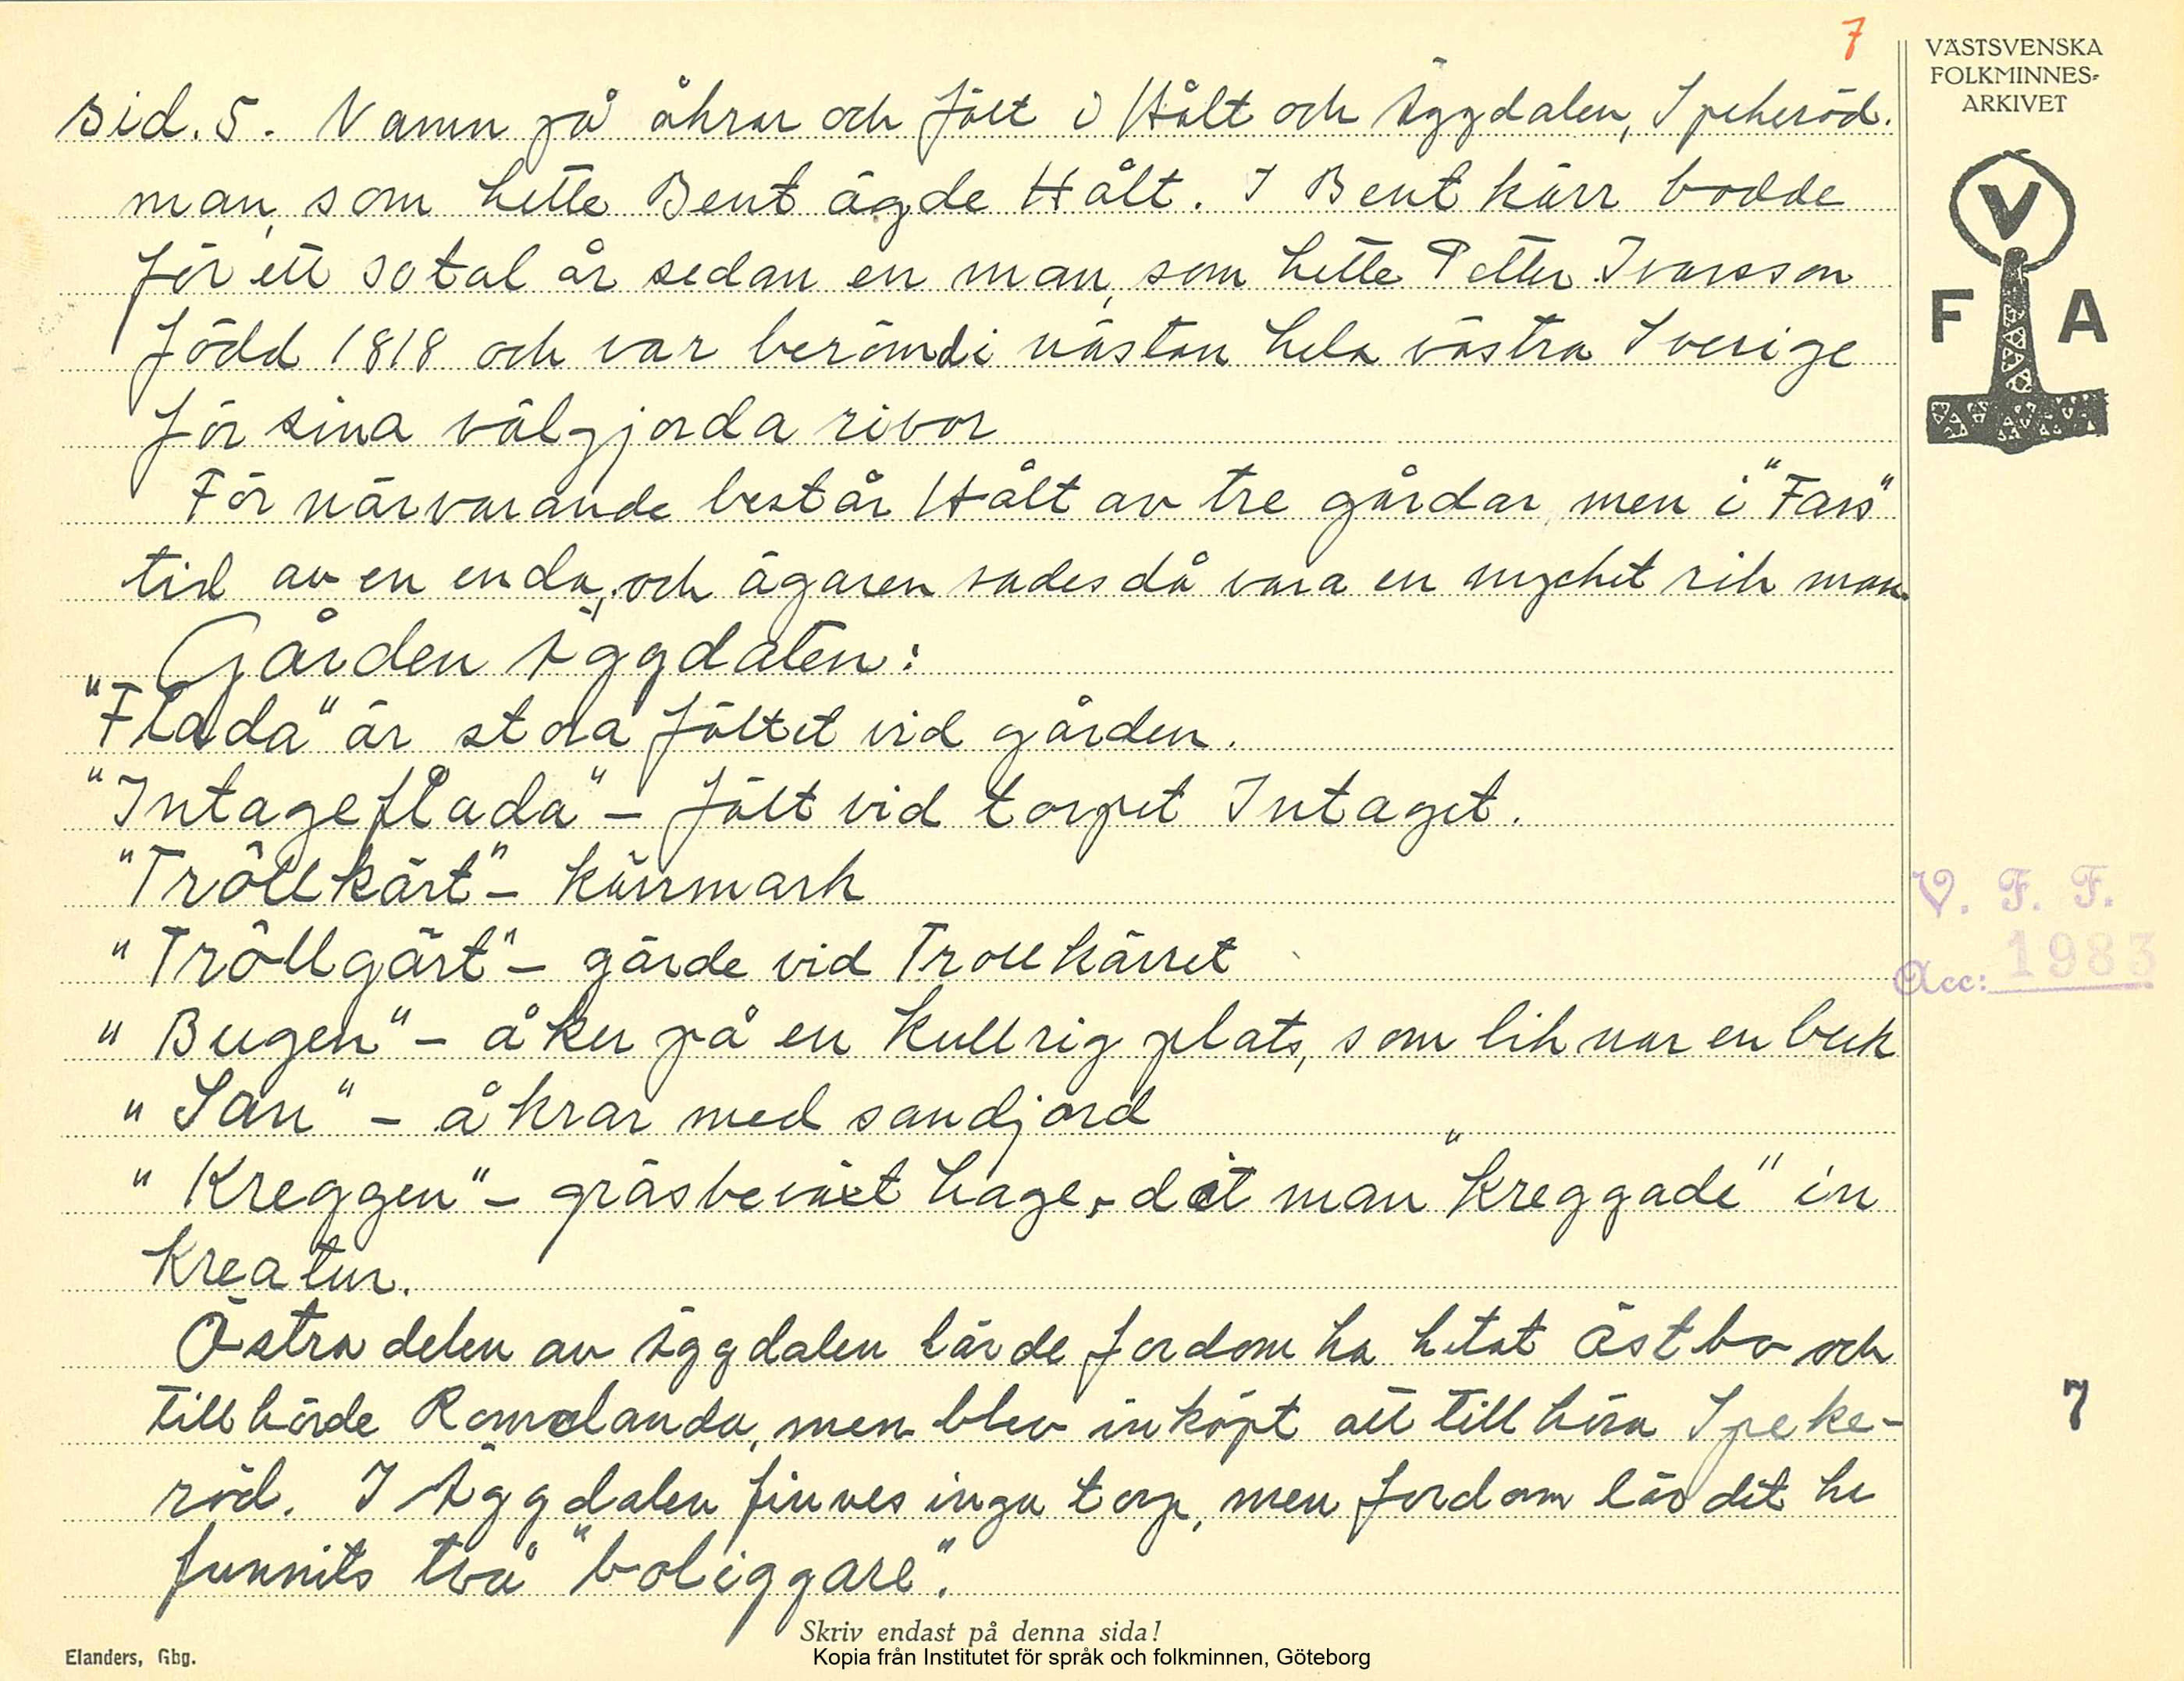 7
VÄSTSVENSKA
FOLKMINNES-
ARKIVET
V
F A
sid. 5. Namn på åkrar och fält i Hålt och Äggdalen, Spekeröd.
man, som hette Bent ägde Hålt. I Bentkärr bodde
för ett 50tal år sedan en man, som hette Petter Ivarsson
född 1818 och var berömd i nästan hela västra Sverige
för sina välgjorda rivor
För närvarande består Hålt av tre gårdar, men i "Fars"
tid av en enda, och ägaren sades då vara en mycket rik man.
Gården Äggdalen:
"Flada" är stora fältet vid gården.
"Intageflada" – fält vid torpet Intaget.
"Tröllkärt" – kärrmark
"Tröllgärt" – gärde vid Trollkärret
"Bugen" – åker på en kullrig plats, som liknar en buk
"San" – åkrar med sandjord
"Kreggen" – gräsbeväxt hage, dit man "kreggade" in
kreatur.
Östra delen av Äggdalen lärde fordom ha hetat Åstbo och
tillhörde Romelanda, men blev inköpt att tillhöra Speke-
röd. I Äggdalen finnes inga torp, men fordom lär det ha
funnits två "boliggare".
V. F. F.
Acc: 1983
7
Skriv endast på denna sida!
Elanders, Gbg.
Kopia från Institutet för språk och folkminnen, Göteborg